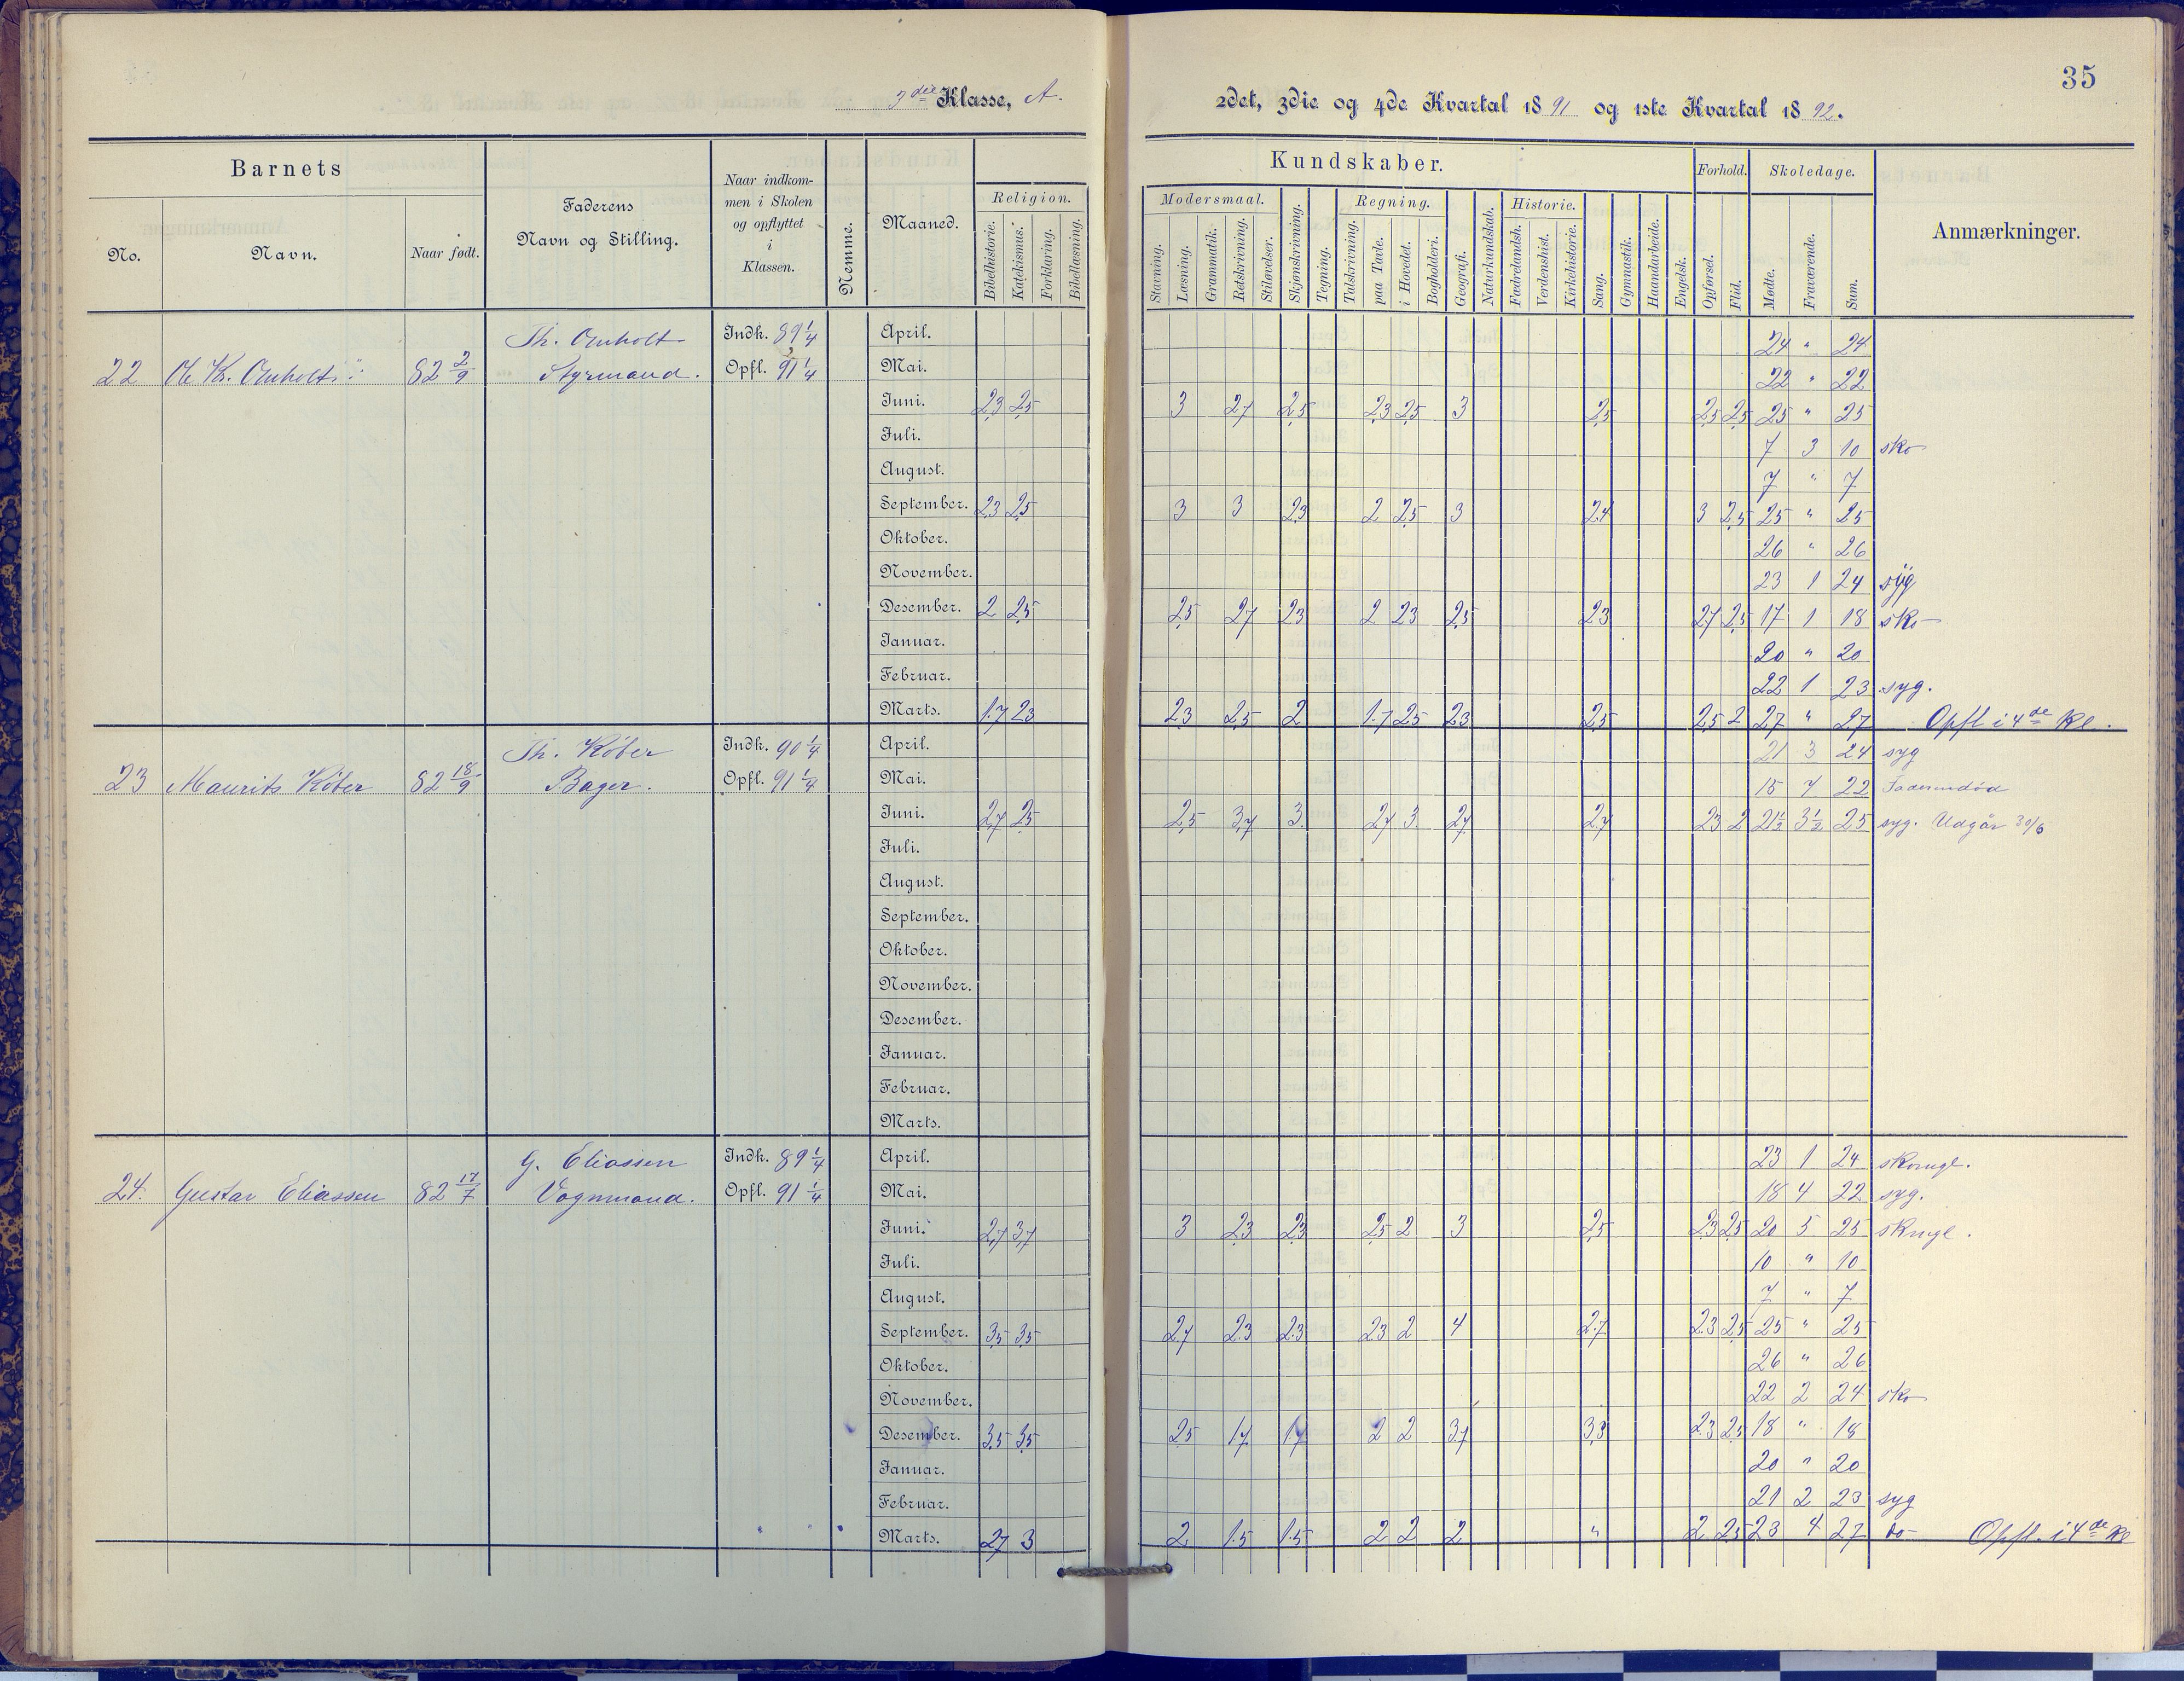 35
3die Klasse, A.
2det, 3die og 4de Kvartal 1891 og 1ste Kvartal 1892.
Barnets
No.
Navn.
Naar født.
Faderens
Navn og Stilling.
Naar indkom-
men i Skolen
og opflyttet
i
Klassen.
Nemme.
Maaned.
Kundskaber.
Religion.
Bibelhistorie.
Katekismus.
Forklaring.
Bibellæsning.
Modersmaal.
Stavning.
Læsning.
Grammatik.
Retskrivning.
Stiløvelser.
Skjønskrivning.
Tegning.
Regning.
Talskrivning.
paa Tavle.
i Hovedet.
Bogholderi.
Geografi.
Naturkundskab.
Historie.
Fædrelandsh.
Verdenshist.
Kirkehistorie.
Sang.
Gymnastik.
Haandarbeide.
Engelsk.
Forhold.
Opførsel.
Flid.
Skoledage.
Mødte.
Fraværende.
Sum.
Anmærkninger.
Th. Omholt Indk. 89 1/4 April. 24 " 24
22 Omholt 82 2/9 Styrmand. Opfl. 91 1/4 Mai. 22 " 22
Juni. 2,3 2,5 3 2,7 2,5 2,3 2,5 3 2,5 2,5 2,5 25 " 25
Juli. 7 3 10 sko
August. 7 " 7
September. 2,3 2,5 3 3 2,3 2 2,5 3 2,4 3 2,5 25 " 25
Oktober. 26 " 26
November. 23 1 24 syg
Desember. 2 2,5 2,5 2,7 2,3 2 2,3 2,5 2,3 2,7 2,5 17 1 18 sko
Januar. 20 " 20
Februar. 22 1 23 syg.
Marts. 1.7 2.3 2,3 2,5 2 1.7 2,5 2,3 2,5 2,5 2 27 " 27 Opfl i 4de Kl.
Th. Köber Indk. 90 1/4 April. 21 3 24 syg
23 Maurits Köber 82 18/9 Bager. Opfl. 91 1/4 Mai. 15 7 22
Juni. 2,7 2,5 2,5 3,7 3 2,7 3 2,7 2,7 2,3 2 21 1/2 3 1/2 25 syg. Udgår 30/6
Juli.
August.
September.
Oktober.
November.
Desember.
Januar.
Februar.
Marts.
G. Eliassen Indk. 89 1/4 April. 23 1 24 skomgl.
24. Gustav Eliassen 82 17/7 Vognmand. Opfl. 91 1/4 Mai. 18 4 22 syg.
Juni. 2,7 3,7 3 2,3 2,3 2,5 2 3 2,5 2,3 2,5 20 5 25 skmgl.
Juli. 10 " 10
August. 7 " 7
September. 3,5 3,5 2,7 2.3 2.3 2,3 2 4 2.7 2.3 2,5 25 " 25
Oktober. 26 " 26
November. 22 2 24 sko
Desember. 3,5 3,5 2,5 1,7 1.7 2 2 3,7 3,3 2.3 2,5 18 " 18
Januar. 20 " 20
Februar. 21 2 23 syg
Marts. 2,7 3 2 1.5 1.5 2 2 2 " 2 2,5 23 4 27 do Opfl. i 4de Kl